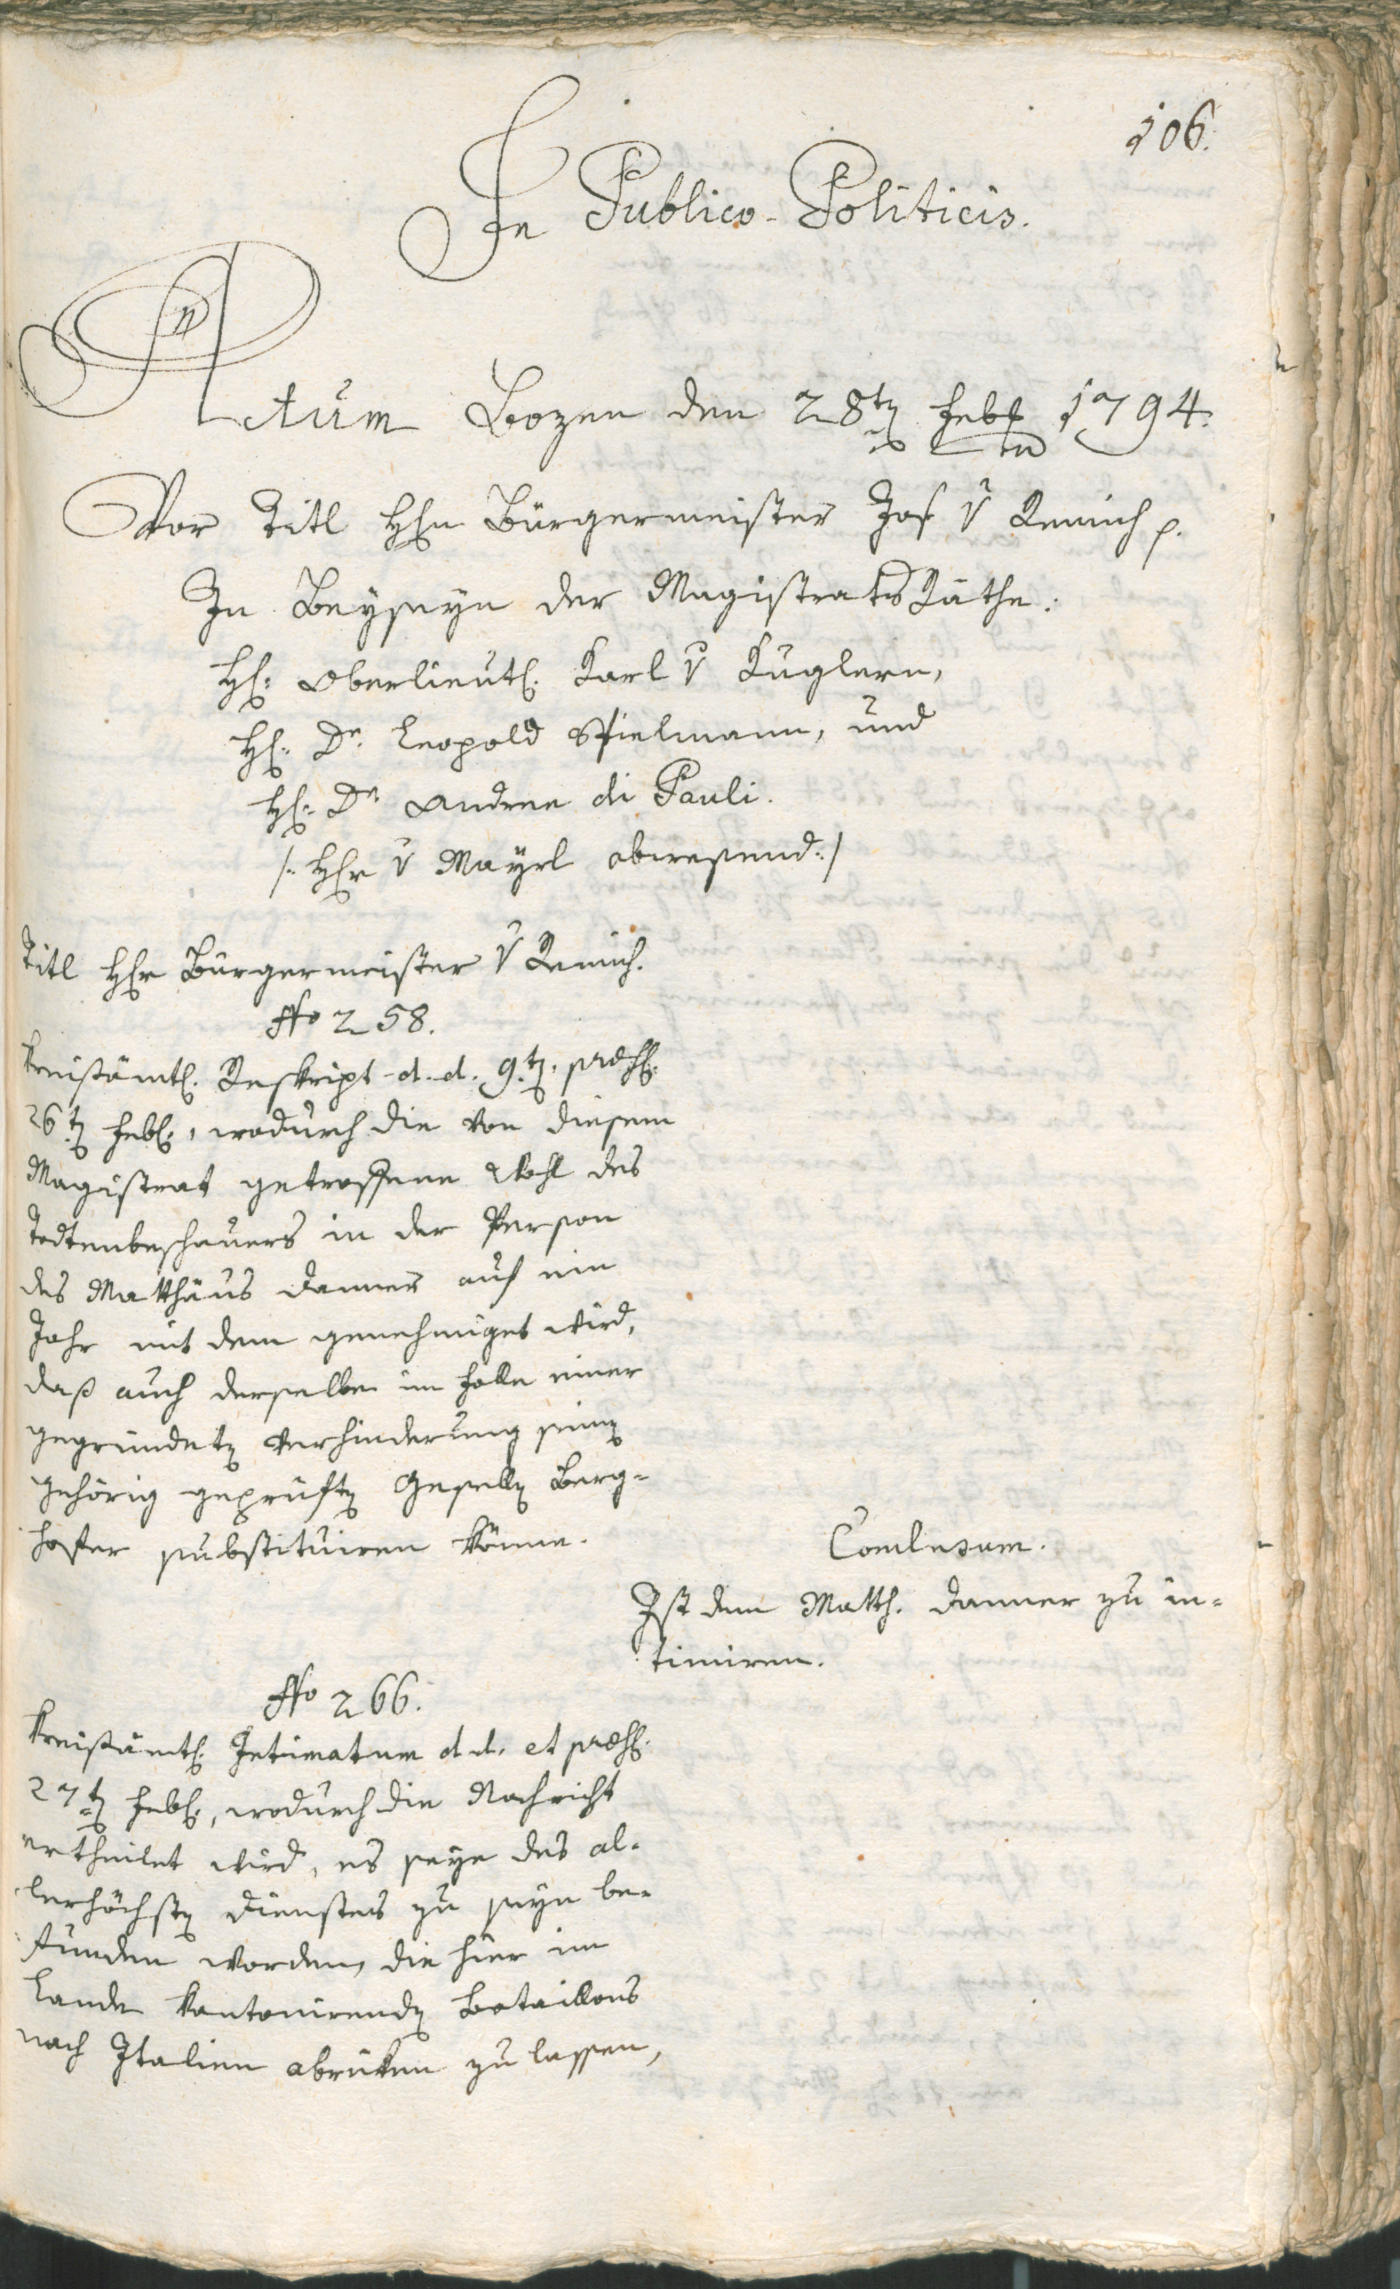 106.
In Publico-Politicis.
Actum Bozen den 28ten Febr 1794.
Vor Titl Hhn Bürgermeister Jos v Remich p.
In Beyseyn der Magistrats Räthe:
H: Oberlieut. Karl v Kuglern,
H: Dr. Leopold Spielmann, und
H: Dr. Andree di Pauli.
/: Hhr v Mayrl abwesend :/
Titl Hhr Bürgermeister v Remich.
No 258.
Kreisämtl. Reskript d. d. 9t. præs.
26t Feb., wodurch die von diesem
Magistrat getroffene Wahl des
Todtenbeschauers in der Person
des Matthäus Danner auf ein
Jahr mit dem genehmiget wird,
daß auch derselbe im Falle einer
gegründeten Verhinderung seinen
gehörig geprüften Gesellen Berg-
hofer substituiren könne.
Conclusum.
Ist dem Matth. Danner zu in-
timiren.
No 266.
Kreisämtl. Intimatum d. d. et præs.
27t Feb., wodurch die Nachricht
ertheilet wird, es seye des al-
lerhöchsten Dienstes zu seyn be-
funden worden, die hier im
Lande kantonirenden Bataillons
nach Italien abrüken zu lassen,